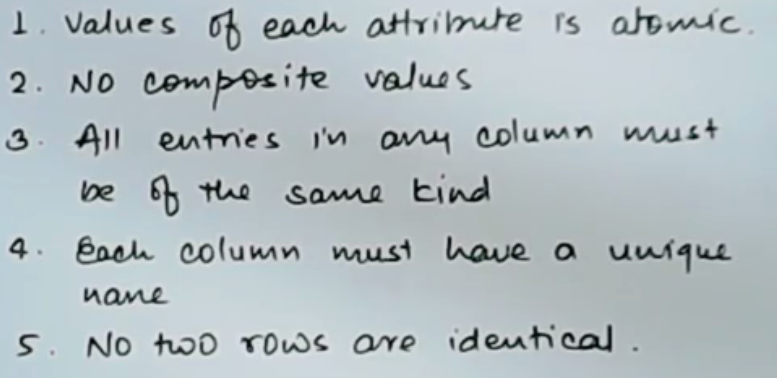 1. Values of each attribute is atomic.
2. No composite values
3. All entries in any column must
be of the same kind
4. Each column must have a unique
name
5. No two rows are identical.